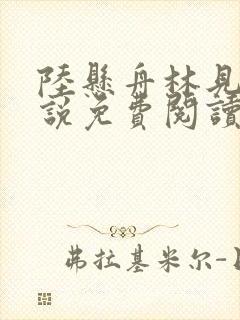 陸懸舟林見
說免費閱讀
弗拉基米尔-